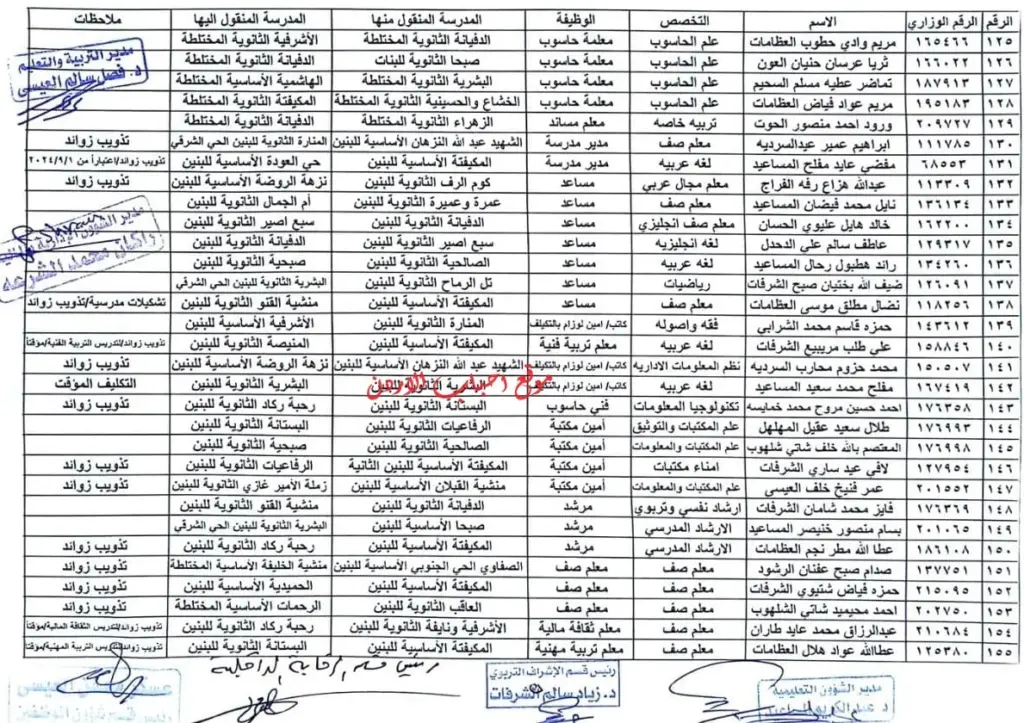 الرقم الرقم الوزاري الاسم التخصص الوظيفة المدرسة المنقول منها المدرسة المنقول اليها ملاحظات
١٢٥ ١٦٥٤٦٦ مريم وادي حطوب العظامات علم الحاسوب معلمة حاسوب الدفيانة الثانوية المختلطة الأشرفية الثانوية المختلطة
١٢٦ ١٦٦٠٢٢ ثريا عرسان حنيان العون علم الحاسوب معلمة حاسوب صبحا الثانوية للبنات الدفيانة الثانوية المختلطة
١٢٧ ١٨٧٩١٣ تماضر عطيه مسلم السحيم علم الحاسوب معلمة حاسوب البشرية الثانوية المختلطة الهاشمية الأساسية المختلطة
١٢٨ ١٩٥١٨٣ مريم عواد فياض العظامات علم الحاسوب معلمة حاسوب الخشاع والحسينية الثانوية المختلطة المكيفتة الثانوية المختلطة
١٢٩ ٢٠٩٧٢٧ ورود احمد منصور الحوت تربيه خاصه معلم مساند الزهراء الثانوية المختلطة الدفيانة الثانوية المختلطة
١٣٠ ١١١٧٨٥ ابراهيم عمير عبدالسرديه معلم صف مدير مدرسة الشهيد عبد الله النزهان الأساسية للبنين المنارة الثانوية للبنين الحي الشرقي تذويب زوائد
١٣١ ٦٨٥٥٣ مفضي عايد مفلح المساعيد لغه عربيه مدير مدرسة المكيفتة الأساسية للبنين حي العودة الأساسية للبنين تذويب زوائد/اعتباراً من ٢٠٢٤/٩/١
١٣٢ ١١٣٣٠٩ عبدالله هزاع رفه الفراج معلم مجال عربي مساعد كوم الرف الثانوية للبنين نزهة الروضة الأساسية للبنين تذويب زوائد
١٣٣ ١٣٦١٣٤ نايل محمد فيضان المساعيد معلم صف مساعد عمرة وعميرة الثانوية للبنين أم الجمال الثانوية للبنين
١٣٤ ١٦٢٢٠٠ خالد هايل عليوي الحسان معلم صف انجليزي مساعد الدفيانة الثانوية للبنين سبع اصير الثانوية للبنين
١٣٥ ١٢٩٣١٧ عاطف سالم علي الدحدل لغه انجليزيه مساعد سبع اصير الثانوية للبنين الدفيانة الثانوية للبنين
١٣٦ ١٣٤٢٦٠ رائد هطبول رحال المساعيد لغه عربيه مساعد الصالحية الثانوية للبنين صبحية الثانوية للبنين
١٣٧ ١٢٦٠٩١ ضيف الله بختيان صبح الشرفات رياضيات مساعد تل الرماح الثانوية للبنين البشرية الثانوية للبنين الحي الشرقي
١٣٨ ١١٨٢٥٦ نضال مطلق موسى العظامات معلم صف مساعد المكيفتة الأساسية للبنين منشية القنو الثانوية للبنين تشكيلات مدرسية/تذويب زوائد
١٣٩ ١٤٣٦١٢ حمزه قاسم محمد الشرابي فقه واصوله كاتب/ امين لوازم بالتكليف المنارة الثانوية للبنين الأشرفية الأساسية للبنين
١٤٠ ١٥٨٨٤٦ علي طلب مريبيع الشرفات لغه عربيه معلم تربية فنية المكيفتة الأساسية للبنين المنيصة الثانوية للبنين تذويب زوائد/لتدريس التربية الفنية/مؤقتاً
١٤١ ١٥٠٥٠٧ محمد حزوم محارب السرديه نظم المعلومات الاداريه كاتب/ امين لوازم بالتكليف الشهيد عبد الله النزهان الأساسية للبنين نزهة الروضة الأساسية للبنين تذويب زوائد
١٤٢ ١٦٧٤١٦ مفلح محمد سعيد المساعيد لغه عربيه كاتب/ امين لوازم بالتكليف البشرية الثانوية للبنين البشرية الثانوية للبنين التكليف المؤقت
١٤٣ ١٧٦٣٥٨ احمد حسين مروح محمد خمايسه تكنولوجيا المعلومات فني حاسوب البستانة الثانوية للبنين رحبة ركاد الثانوية للبنين تذويب زوائد
١٤٤ ١٧٦٩٩٣ طلال سعيد عقيل المهلهل علم المكتبات والتوثيق أمين مكتبة الرفاعيات الثانوية للبنين البستانة الثانوية للبنين
١٤٥ ١٧٦٩٩٨ المعتصم بالله خلف شاتي شلهوب علم المكتبات والمعلومات أمين مكتبة الصالحية الثانوية للبنين صبحية الثانوية للبنين
١٤٦ ١٢٧٩٥٤ لافي عيد ساري الشرفات امناء مكتبات أمين مكتبة المكيفتة الأساسية للبنين الثانية الرفاعيات الثانوية للبنين تذويب زوائد
١٤٧ ٢٠١٥٥٢ عمر فنيخ خلف العيسى علم المكتبات والمعلومات أمين مكتبة منشية القبلان الأساسية للبنين زملة الأمير غازي الثانوية للبنين تذويب زوائد
١٤٨ ١٧٦٣٦٩ فايز محمد شامان الشرفات ارشاد نفسي وتربوي مرشد الدفيانة الثانوية للبنين منشية القنو الثانوية للبنين
١٤٩ ٢٠١٠٦٥ بسام منصور خنيصر المساعيد الارشاد المدرسي مرشد صبحا الأساسية للبنين البشرية الثانوية للبنين الحي الشرقي
١٥٠ ١٨٦١٠٨ عطا الله مطر نجم العظامات الارشاد المدرسي مرشد المكيفتة الأساسية للبنين رحبة ركاد الثانوية للبنين تذويب زوائد
١٥١ ١٣٧٧٥١ صدام صبح عفنان الرشود معلم صف معلم صف الصفاوي الحي الجنوبي الأساسية للبنين منشية الخليفة الأساسية المختلطة تذويب زوائد
١٥٢ ٢١٥٠٩٥ حمزه فياض شتيوي الشرفات معلم صف معلم صف المكيفتة الأساسية للبنين الحميدية الأساسية للبنين تذويب زوائد
١٥٣ ٢٠٢٧٥٠ احمد محيميد شاتي الشلهوب معلم صف معلم صف العاقب الثانوية للبنين الرحمات الأساسية المختلطة تذويب زوائد
١٥٤ ٢١٠٦٨٤ عبدالرزاق محمد عايد طاران معلم صف معلم ثقافة مالية الأشرفية ونايفة الثانوية للبنين رحبة ركاد الثانوية للبنين تذويب زوائد/لتدريس الثقافة المالية/مؤقتاً
١٥٥ ١٢٥٣٨٠ عطاالله عواد هلال العظامات معلم صف معلم تربية مهنية المكيفتة الأساسية للبنين البستانة الثانوية للبنين تذويب زوائد/لتدريس التربية المهنية/مؤقتاً
مدير التربية والتعليم
د. فضل سالم العيسى
موقع اخبار الاردن
رئيس قسم الرقابة الداخلية
رئيس قسم الإشراف التربوي
د. زياد سالم الشرفات
مدير الشؤون التعليمية